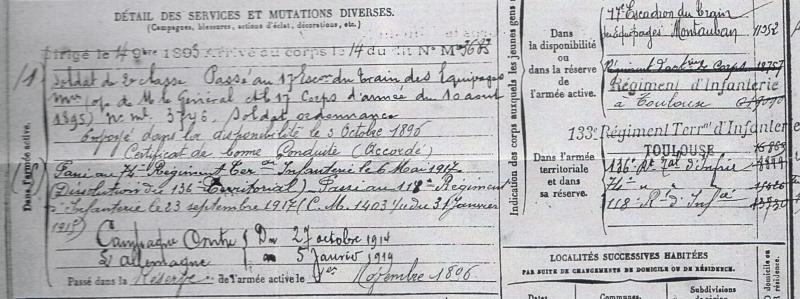 DÉTAIL DES SERVICES ET MUTATIONS DIVERSES.
(Campagnes, blessures, actions d'éclat, décorations, etc.)
Dirigé le 14 9bre 1895 Arrivé au corps le 14 du dit No Mle 3683
Dans l'armée active.
(1) Soldat de 2e classe Passé au 17 Escon du Train des Equipages
Mres (op. de M. le Général Ct le 17 Corps d'armée du 10 aout
1895) No ml. 3746, Soldat ordonnance
Envoyé dans la disponibilité le 3 Octobre 1896
Certificat de bonne Conduite (Accordé)
Passé au 74e Régiment Ter al Infanterie le 6 Mai 1917
(Dissolution du 136e Territorial) Passé au 118e Régiment
d'Infanterie le 23 septembre 1917 (C.M. 1403 1/11 du 31 Janvier
1917)
Campagne Contre Du 27 octobre 1914
l'allemagne au 5 Janvier 1919
Passé dans la Réserve de l'armée active le 1er Novembre 1896
Indication des corps auxquels les jeunes gens
Dans
la disponibilité
ou
dans la réserve
de
l'armée active.
17e Escadron du Train
des Equipages Montauban 11352
Régiment d'Infanterie
à Toulouse
133e Régiment Terral d'Infanterie
TOULOUSE
Dans l'armée
territoriale
et dans
sa réserve.
136e Rt Tal d'Infrie
74e " "
118e Rt d'Infie
LOCALITÉS SUCCESSIVES HABITÉES
PAR SUITE DE CHANGEMENTS DE DOMICILE OU DE RÉSIDENCE.
Dates
Communes.
Subdivisions
domicile ou
résidence.